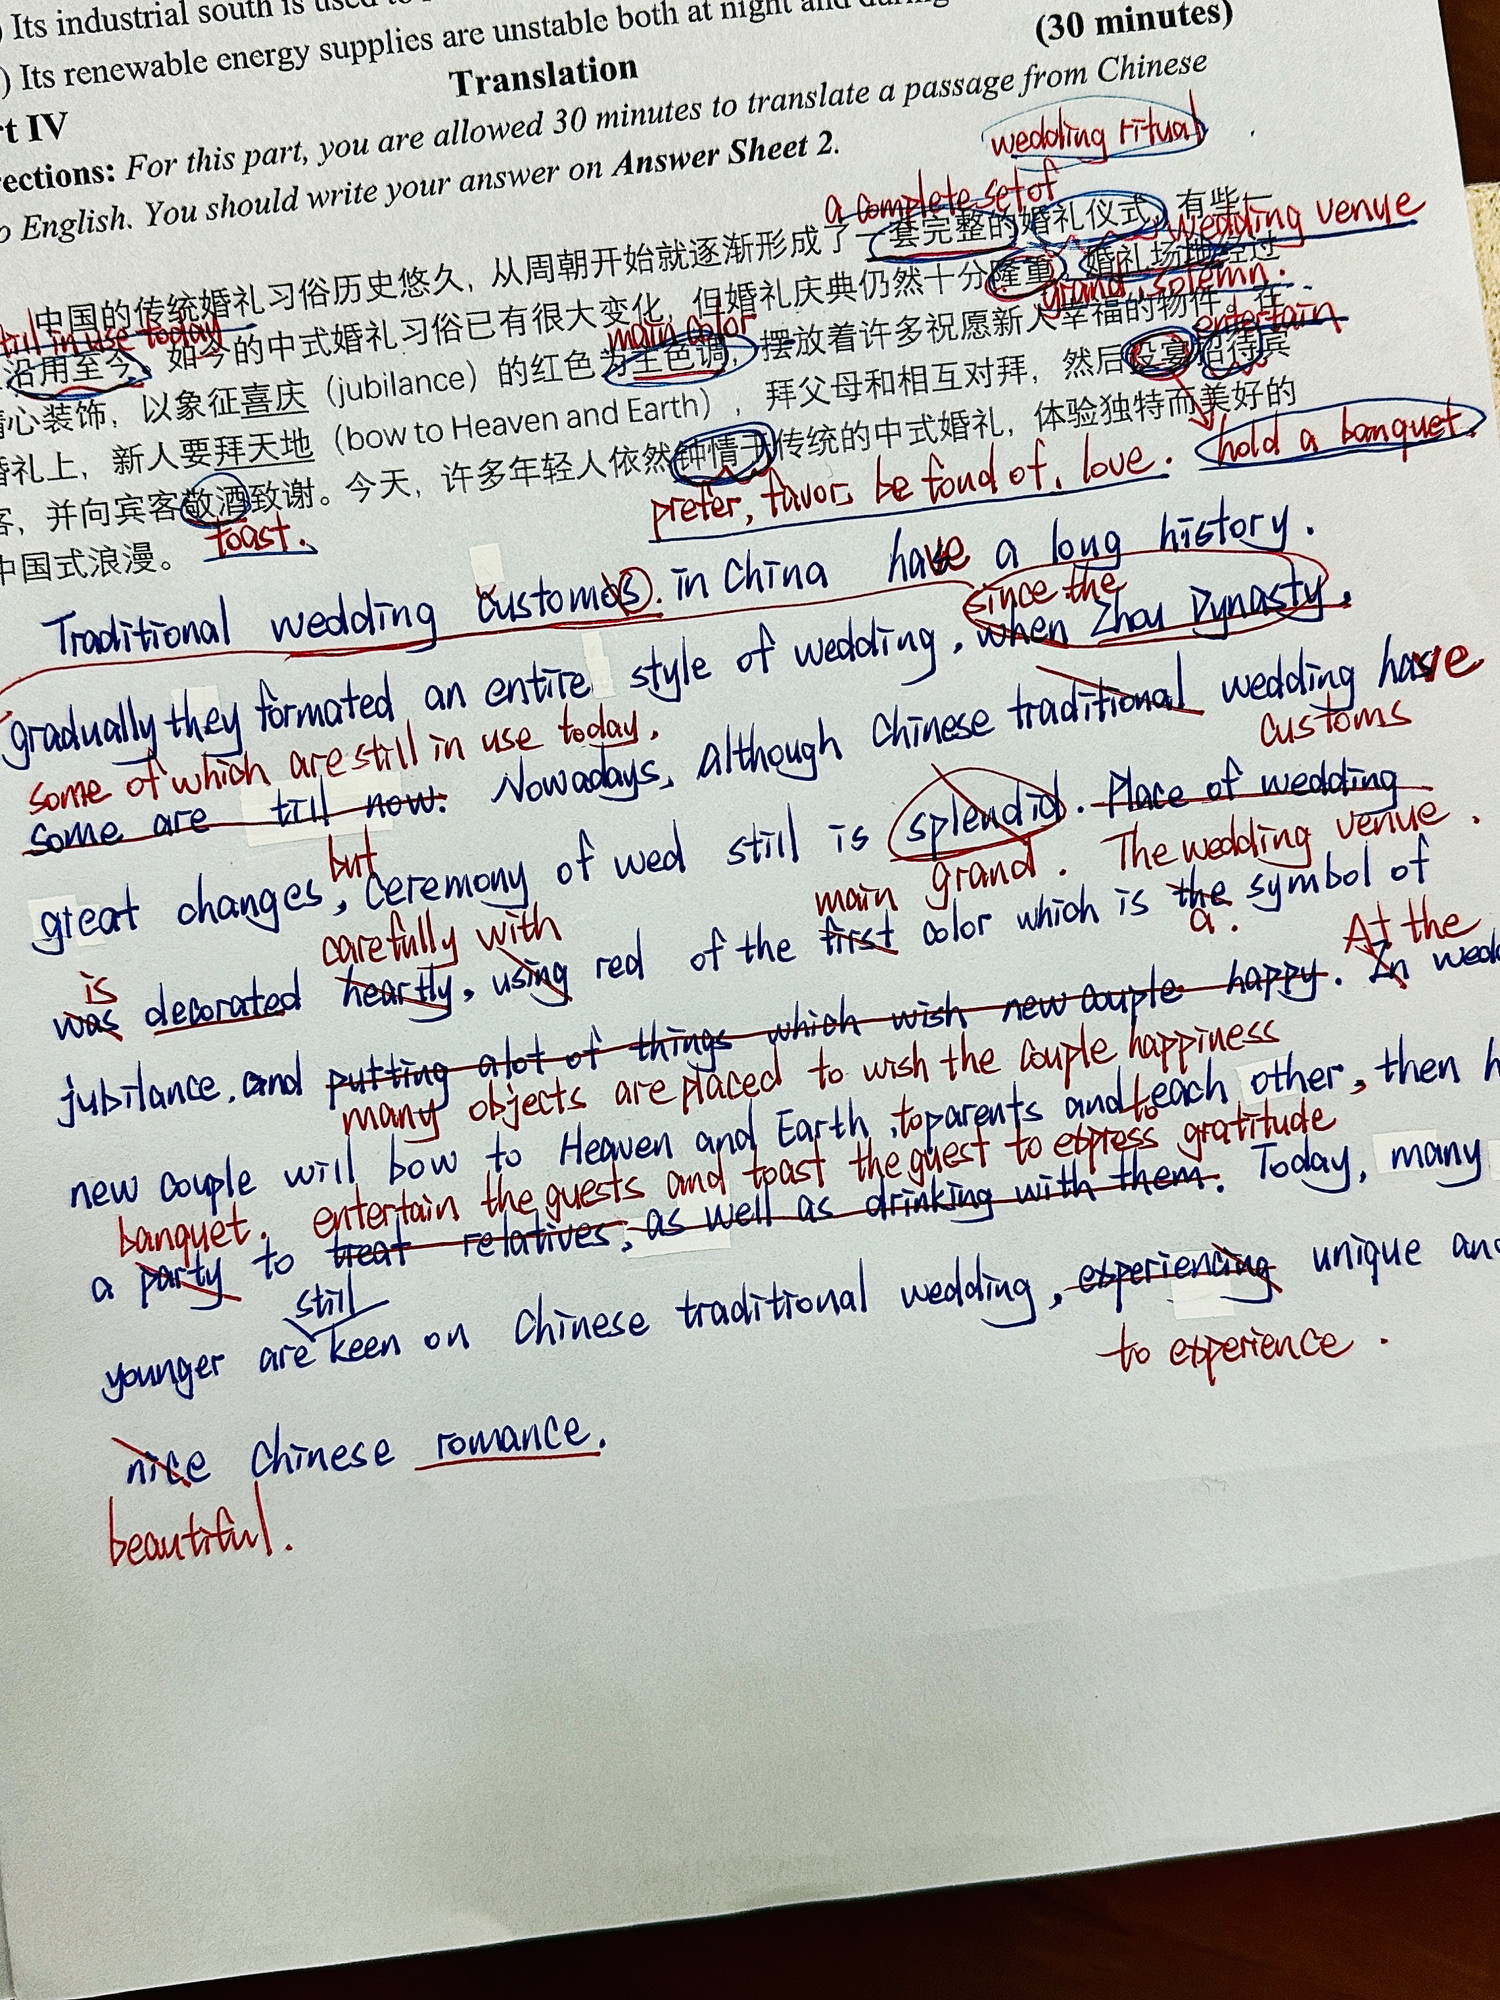 Its industrial south is used to
) Its renewable energy supplies are unstable both at night and during
(30 minutes)
Translation
rt IV
ections: For this part, you are allowed 30 minutes to translate a passage from Chinese
o English. You should write your answer on Answer Sheet 2.
wedding ritual
a complete set of
中国的传统婚礼习俗历史悠久，从周朝开始就逐渐形成了一套完整的婚礼仪式，有些一
wedding venue
still in use today
沿用至今。如今的中式婚礼习俗已有很大变化，但婚礼庆典仍然十分隆重，婚礼场地经过
grand, solemn.
main color
心装饰，以象征喜庆（jubilance）的红色为主色调，摆放着许多祝愿新人幸福的物件。在
entertain
婚礼上，新人要拜天地（bow to Heaven and Earth），拜父母和相互对拜，然后设宴招待宾
hold a banquet.
客，并向宾客敬酒致谢。今天，许多年轻人依然钟情于传统的中式婚礼，体验独特而美好的
toast.
prefer, favor, be fond of, love.
中国式浪漫。
Traditional wedding customs. in China have a long history.
since the
gradually they formated an entire style of wedding, when Zhou Dynasty.
some of which are still in use today.
some are till now. Nowadays, although Chinese traditional wedding have
customs
but
great changes, ceremony of wed still is splendid. Place of wedding
grand. The wedding venue.
carefully with
main
is
was decorated heartly, using red of the first color which is the symbol of
a.
At the
jubilance, and putting alot of things which wish new couple happy. In
many objects are placed to wish the couple happiness
new couple will bow to Heaven and Earth, to parents and to each other, then
banquet. entertain the guests and toast the guest to express gratitude
a party to treat relatives, as well as drinking with them. Today, many
still
younger are keen on Chinese traditional wedding, experiencing unique
to experience.
nice Chinese romance.
beautiful.